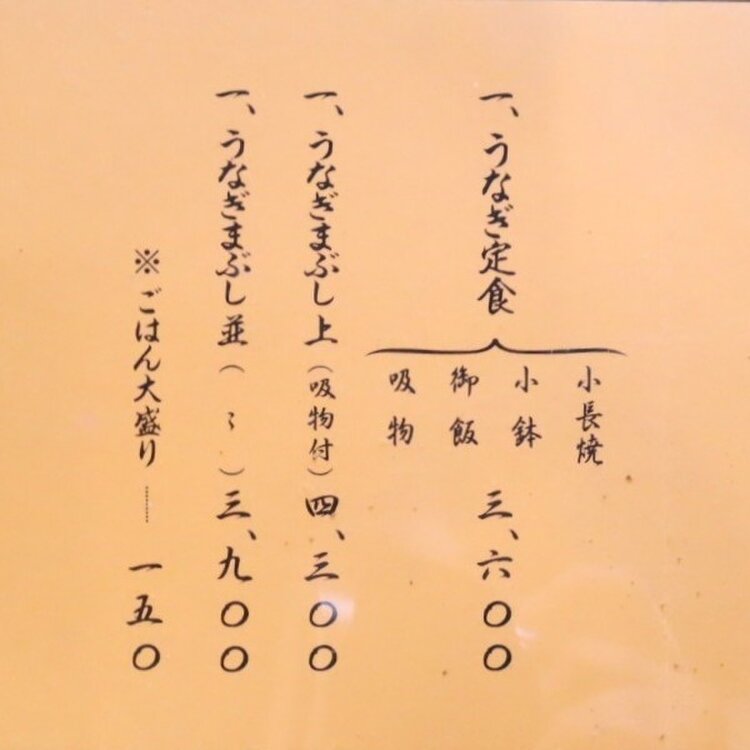 一、うなぎ定食
小長焼
小鉢
御飯
吸物
三、六〇〇
一、うなぎまぶし上(吸物付)四、三〇〇
一、うなぎまぶし並(〻)三、九〇〇
※ごはん大盛り………一五〇